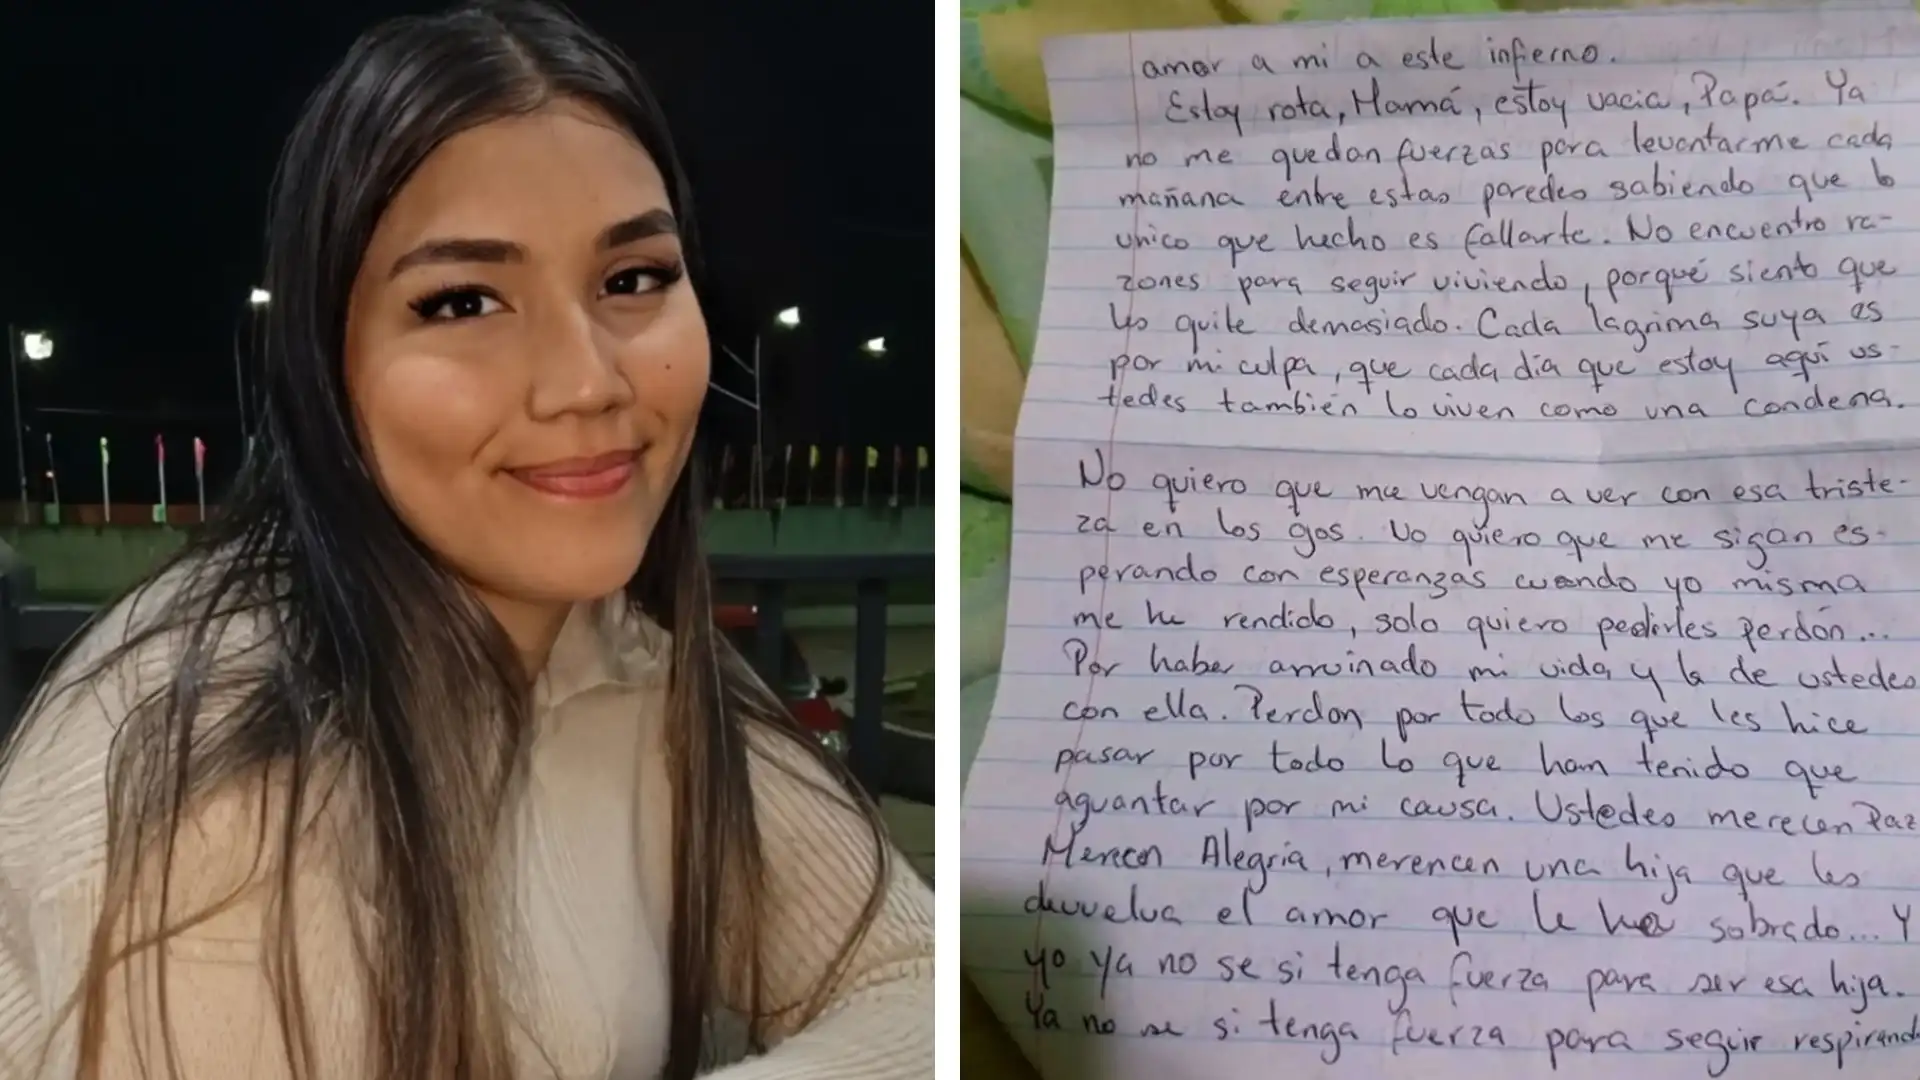 amor a mi a este infierno.
Estoy rota, Mamá, estoy vacia, Papá. Ya
no me quedan fuerzas para levantarme cada
mañana entre estas paredes sabiendo que lo
unico que hecho es fallarte. No encuentro ra-
zones para seguir viviendo, porqué siento que
Yo quite demasiado. Cada lagrima suya es
por mi culpa, que cada día que estoy aquí us-
tedes también lo viven como una condena.
No quiero que me vengan a ver con esa triste-
za en los gos. No quiero que me sigan es-
perando con esperanzas cuando yo misma
me he rendido, solo quiero pedirles perdón...
Por haber arruinado mi vida y la de ustedes
con ella. Perdon por todo los que les hice
pasar por todo lo que han tenido que
aguantar por mi causa. Ustedes merecen Paz
Merecen Alegría, merencen una hija que les
devuelva el amor que le ha sobrado... Y
yo ya no se si tenga fuerza para ser esa hija.
Ya no se si tenga fuerza para seguir respirand